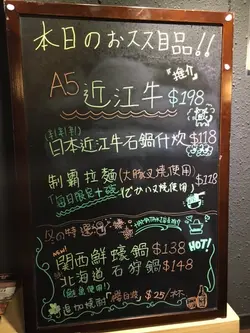 本日のおススメ品!!
"推介"
A5 近江牛 $198
日本近江牛石鍋什炊 $118
制霸拉麵(大豚叉燒使用) $118
"每日限定十碗"
冬の特選
NEW!
關西鮮蠔鍋 $138
HOT!
北海道石狩鍋 $148
(鮭魚使用)
$25/杯